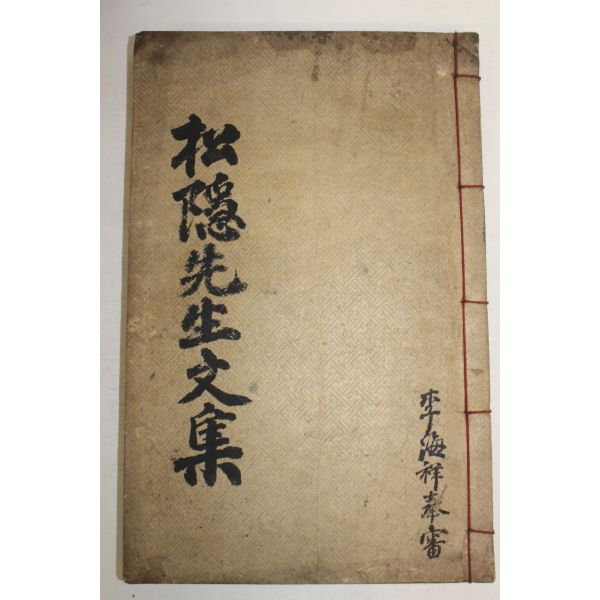 松隱先生文集
李海祥奉審